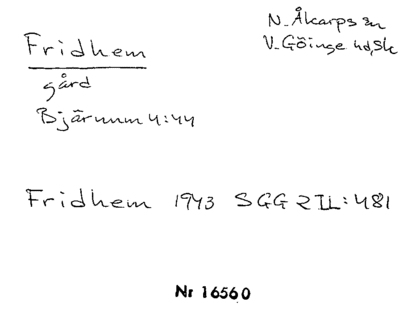 Fridhem
N. Åkarps sn
V. Göinge hd, Sk
gård
Bjärnum 4:44
Fridhem 1943 SGG 2 II: 481
Nr 16560